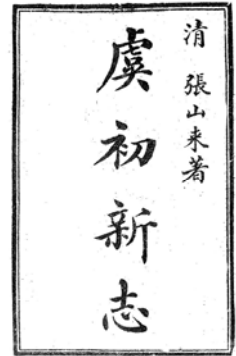 清 張山来著
虞初新志